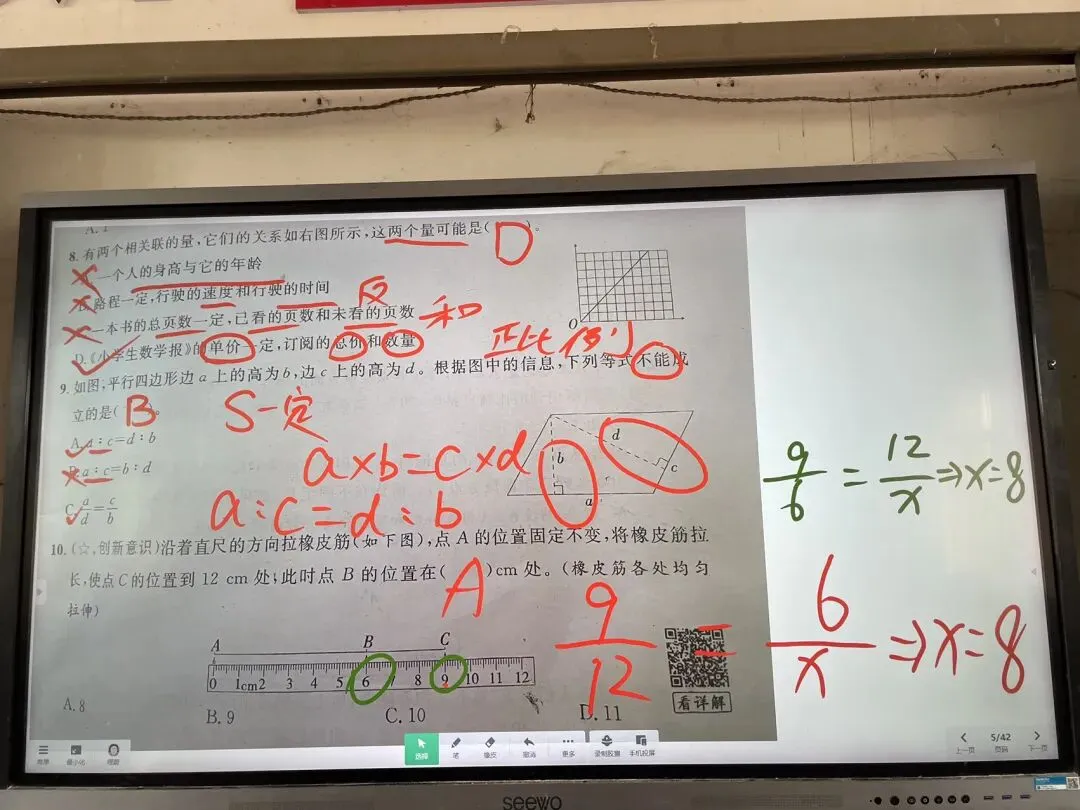 8. 有两个相关联的量,它们的关系如右图所示,这两个量可能是( D )。
一个人的身高与它的年龄
路程一定,行驶的速度和行驶的时间 反
一本书的总页数一定,已看的页数和未看的页数 和
D.《小学生数学报》的单价一定,订阅的总价和数量 正比例
O
9. 如图,平行四边形边 a 上的高为 b,边 c 上的高为 d。根据图中的信息,下列等式不能成
立的是( B )。
S一定
A. a:c=d:b
a:c=b:d
C. a/d=c/b
a×b=c×d
a:c=d:b
b
d
c
a
10. (☆,创新意识)沿着直尺的方向拉橡皮筋(如下图),点 A 的位置固定不变,将橡皮筋拉
长,使点 C 的位置到 12 cm 处;此时点 B 的位置在( A )cm 处。(橡皮筋各处均匀
拉伸)
A B C
0 1cm2 3 4 5 6 8 9 10 11 12
A. 8
B. 9
C. 10
D. 11
看详解
9/12 = 6/x ⇒ x=8
9/6 = 12/x ⇒ x=8
最小化
选择
笔
橡皮
撤消
更多
录制胶囊
手机投屏
上一页
5/42
页码
下一页
seewo